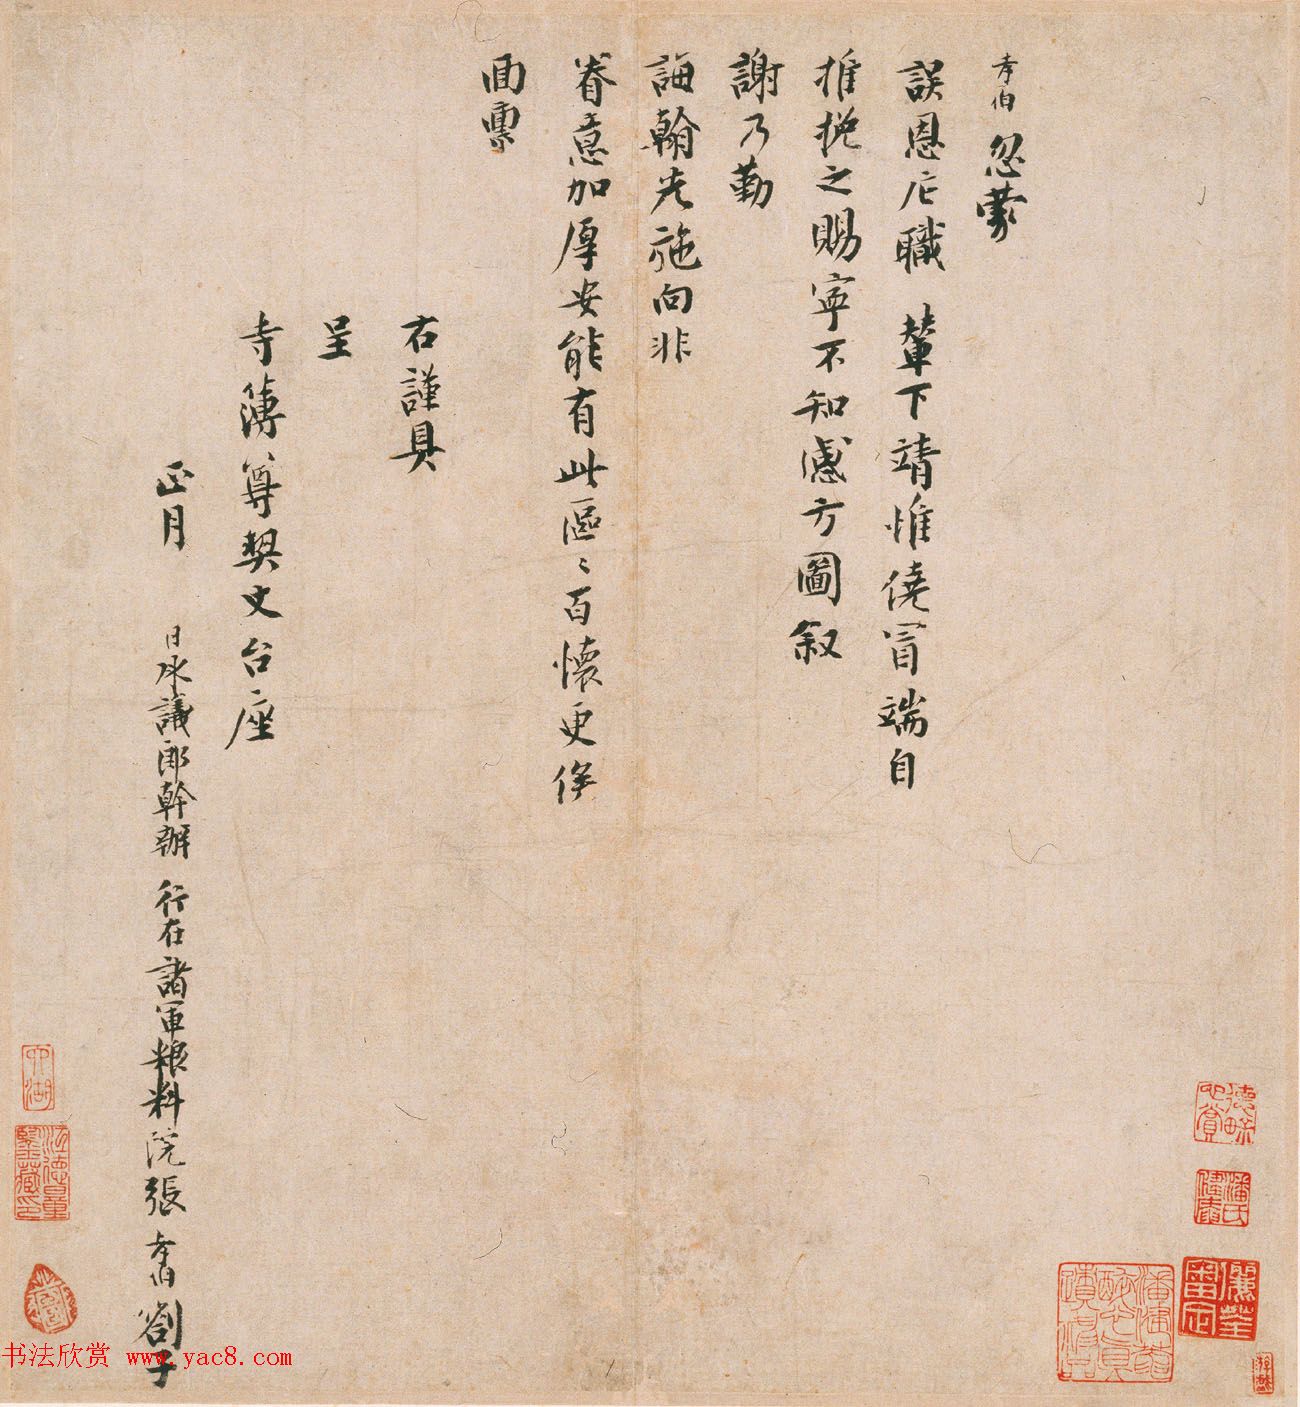 孝伯忽蒙
誤恩庀職 輦下靖惟僥冒端自
推挽之賜寧不知感方圖叙
謝乃勤
誨翰先施向非
眷意加厚安能有此區〻百懷更俟
面稟
右謹具
呈
寺簿尊契丈台座
正月 日承議郎幹辦 行在諸軍粮料院張孝伯劄子
書法欣赏 www.yac8.com